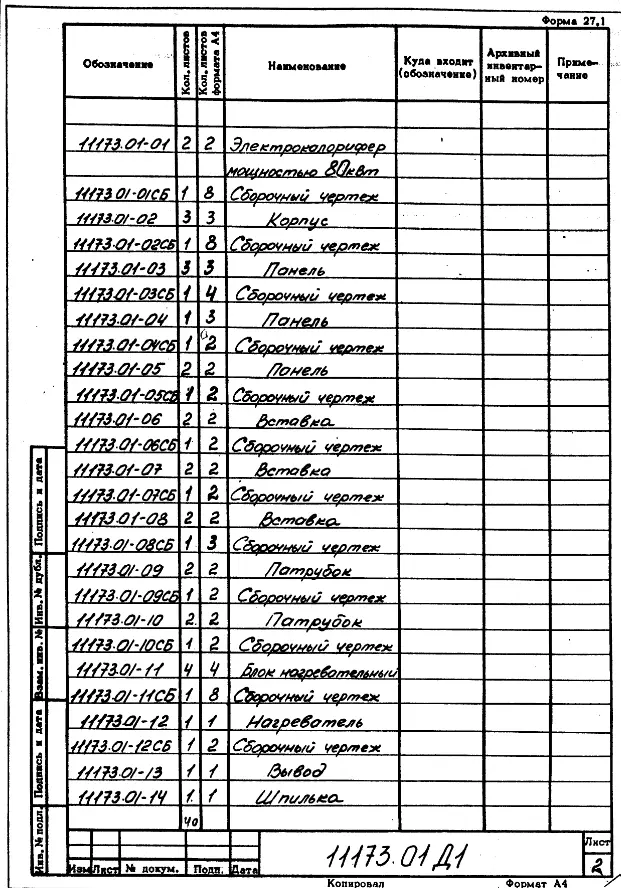 Форма 27,1
Обозначение Кол. листов Кол. листов формата А4 Наименование Куда входит (обозначение) Архивный инвентарный номер Примечание
11173.01-01 2 2 Электрокалорифер
мощностью 80квт
11173.01-01СБ 1 8 Сборочный чертеж
11173.01-02 3 3 Корпус
11173.01-02СБ 1 8 Сборочный чертеж
11173.01-03 3 3 Панель
11173.01-03СБ 1 4 Сборочный чертеж
11173.01-04 1 3 Панель
11173.01-04СБ 1 2 Сборочный чертеж
11173.01-05 2 2 Панель
11173.01-05СБ 1 2 Сборочный чертеж
11173.01-06 2 2 Вставка
11173.01-06СБ 1 2 Сборочный чертеж
11173.01-07 2 2 Вставка
11173.01-07СБ 1 2 Сборочный чертеж
11173.01-08 2 2 Вставка
11173.01-08СБ 1 3 Сборочный чертеж
11173.01-09 2 2 Патрубок
11173.01-09СБ 1 2 Сборочный чертеж
11173.01-10 2 2 Патрубок
11173.01-10СБ 1 2 Сборочный чертеж
11173.01-11 4 4 Блок нагревательный
11173.01-11СБ 1 8 Сборочный чертеж
11173.01-12 1 1 Нагреватель
11173.01-12СБ 1 2 Сборочный чертеж
11173.01-13 1 1 Вывод
11173.01-14 1 1 Шпилька
40
Подпись и дата
Инв. № дубл.
Взам. инв. №
Подпись и дата
Инв. № подл.
Изм Лист № докум. Подп. Дата
11173.01 Д1
Лист
2
Копировал Формат А4